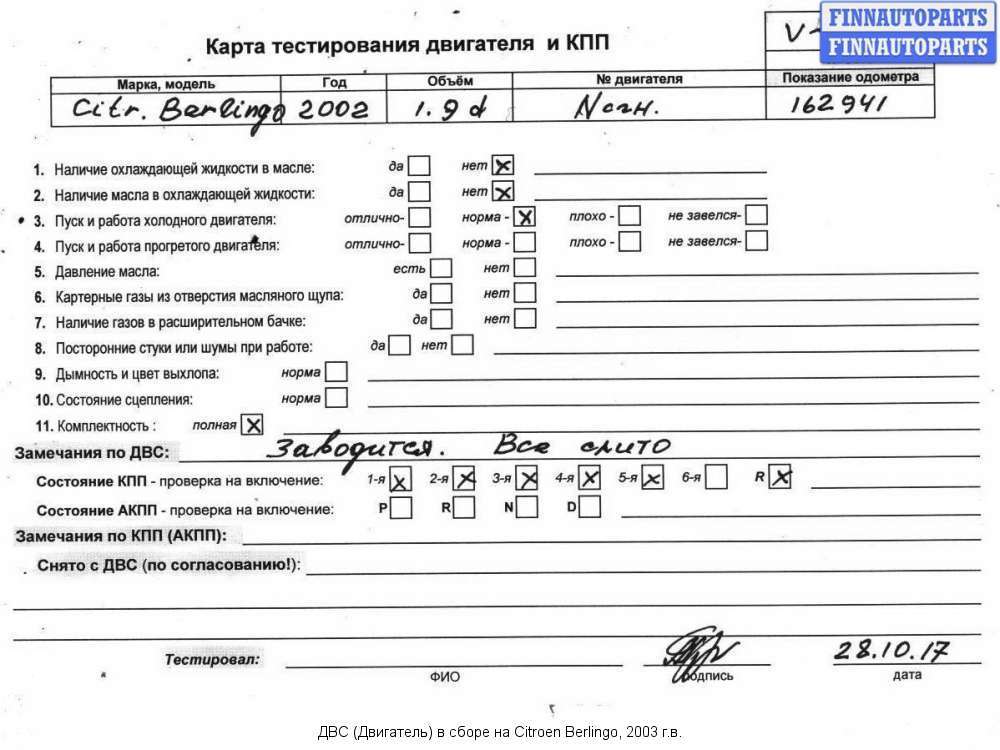 FINNAUTOPARTS
FINNAUTOPARTS
V-
Карта тестирования двигателя и КПП
Марка, модель Год Объём № двигателя Показание одометра
Citr. Berlingo 2002 1.9 d 162941
1. Наличие охлаждающей жидкости в масле: да нет X
2. Наличие масла в охлаждающей жидкости: да нет X
3. Пуск и работа холодного двигателя: отлично- норма - X плохо - не завелся-
4. Пуск и работа прогретого двигателя: отлично- норма - плохо - не завелся-
5. Давление масла: есть нет
6. Картерные газы из отверстия масляного щупа: да нет
7. Наличие газов в расширительном бачке: да нет
8. Посторонние стуки или шумы при работе: да нет
9. Дымность и цвет выхлопа: норма
10. Состояние сцепления: норма
11. Комплектность : полная X
Замечания по ДВС: Заводится. Все слито
Состояние КПП - проверка на включение: 1-я X 2-я X 3-я X 4-я X 5-я X 6-я R X
Состояние АКПП - проверка на включение: P R N D
Замечания по КПП (АКПП):
Снято с ДВС (по согласованию!):
Тестировал: 28.10.17
ФИО подпись дата
ДВС (Двигатель) в сборе на Citroen Berlingo, 2003 г.в.